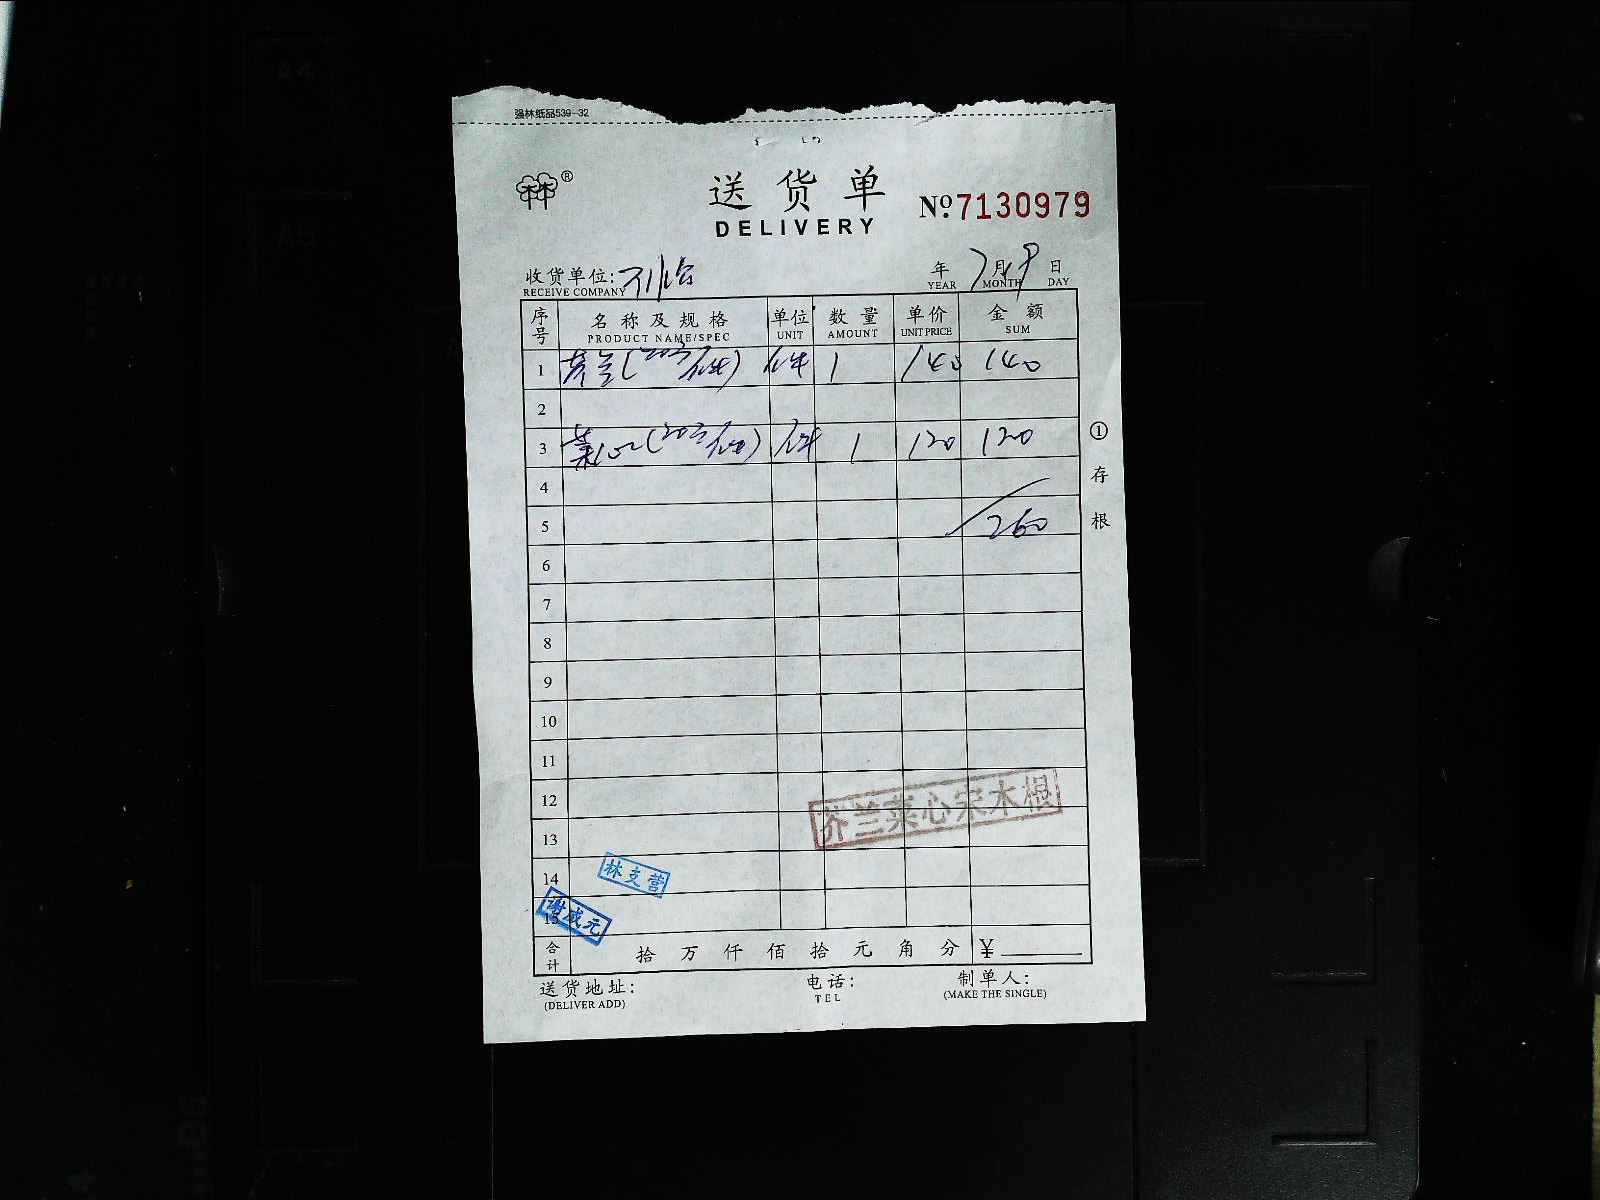 强林纸品539-32
®
送货单
DELIVERY
№7130979
收货单位:
RECEIVE COMPANY
年 7月9日
YEAR MONTH DAY
序号 名称及规格 单位 数量 单价 金额
PRODUCT NAME/SPEC UNIT AMOUNT UNIT PRICE SUM
1 芥兰(20斤/件) 件 1 140 140
2
3 菜心(20斤/件) 件 1 120 120
4
5 260
6
7
8
9
10
11
12
13
14
15
芥兰菜心宋木根
林支营
谢成元
合计 拾万仟佰拾元角分 ¥
送货地址: 电话: 制单人:
(DELIVER ADD) TEL (MAKE THE SINGLE)
①存根